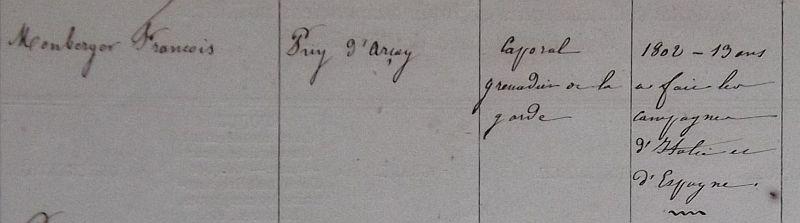 Monberger Francois
Puy d'Arçay
Caporal
grenadier de la
garde
1802 - 13 ans
a fait les
campagnes
d'Italie et
d'Espagne.